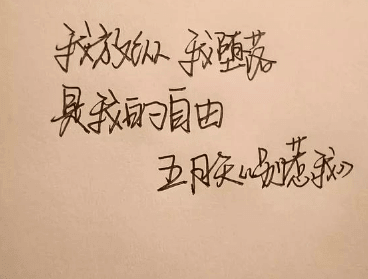 我放纵 我堕落
是我的自由
五月天《别惹我》